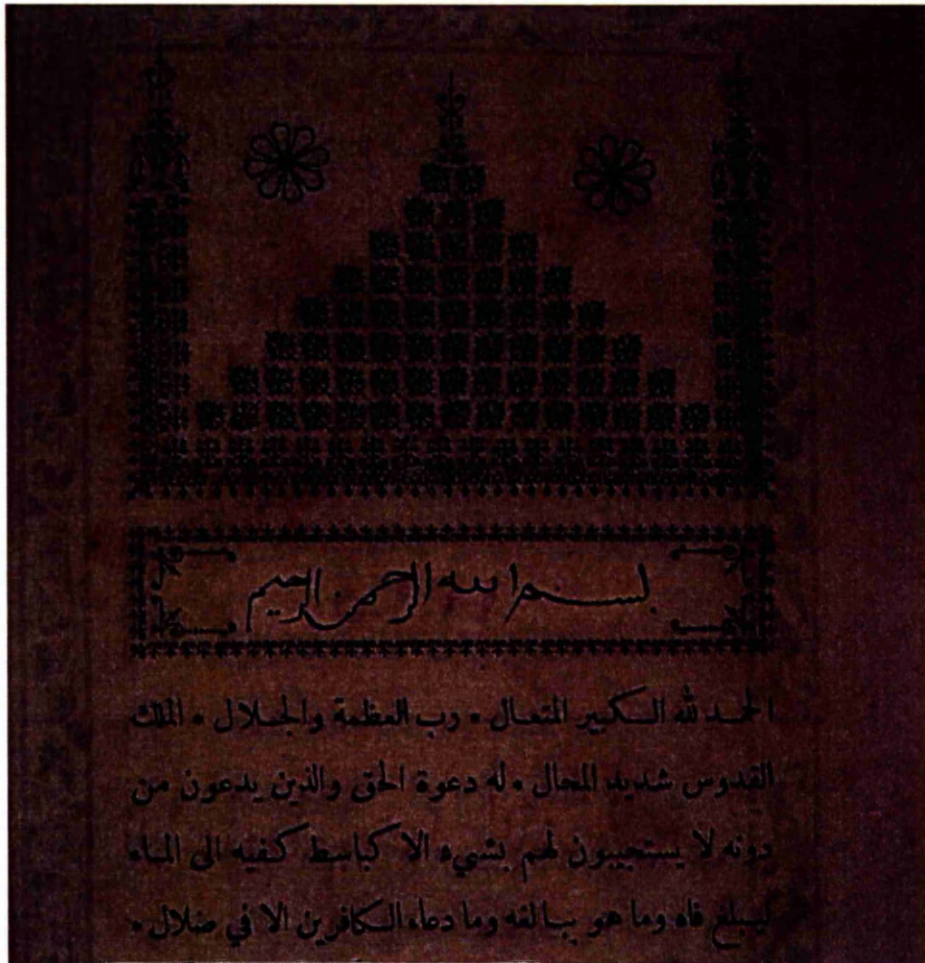 بسم الله الرحمن الرحيم
الحمد لله الكبير المتعال * رب العظمة والجلال * الملك
القدوس شديد المحال * له دعوة الحق والذين يدعون من
دونه لا يستجيبون لهم بشيء الا كباسط كفيه الى الماء
ليبلغ فاه وما هو ببالغه وما دعاء الكافرين الا في ضلال *